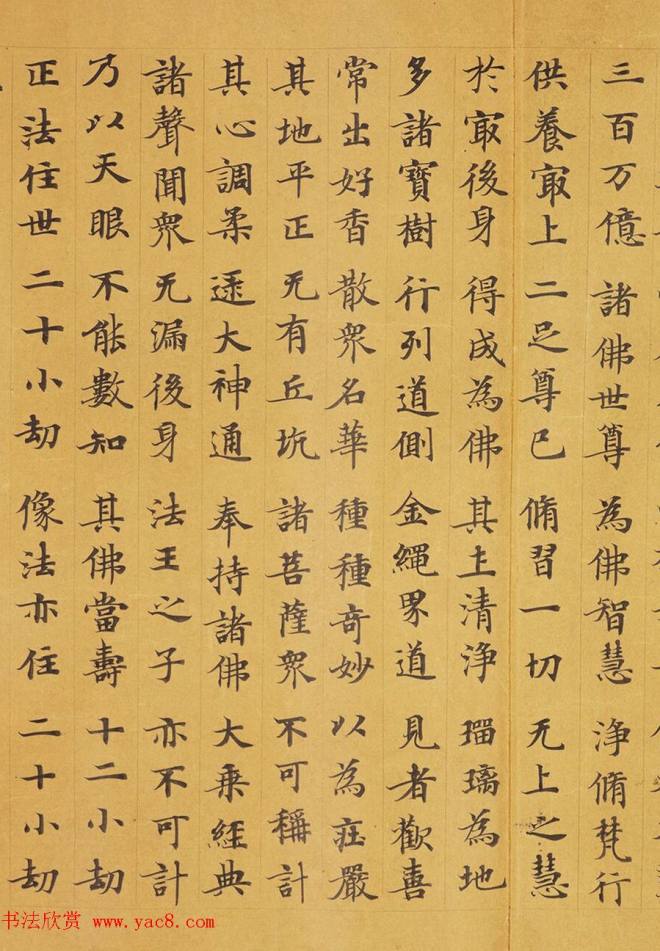 三百万億 諸佛世尊 為佛智慧 淨脩梵行
供養㝡上 二足尊已 脩習一切 无上之慧
於㝡後身 得成為佛 其土清淨 瑠璃為地
多諸寶樹 行列道側 金繩界道 見者歡喜
常出好香 散衆名華 種種奇妙 以為莊嚴
其地平正 无有丘坑 諸菩薩衆 不可稱計
其心調柔 逮大神通 奉持諸佛 大乘經典
諸聲聞衆 无漏後身 法王之子 亦不可計
乃以天眼 不能數知 其佛當壽 十二小劫
正法住世 二十小劫 像法亦住 二十小劫
书法欣赏 www.yac8.com